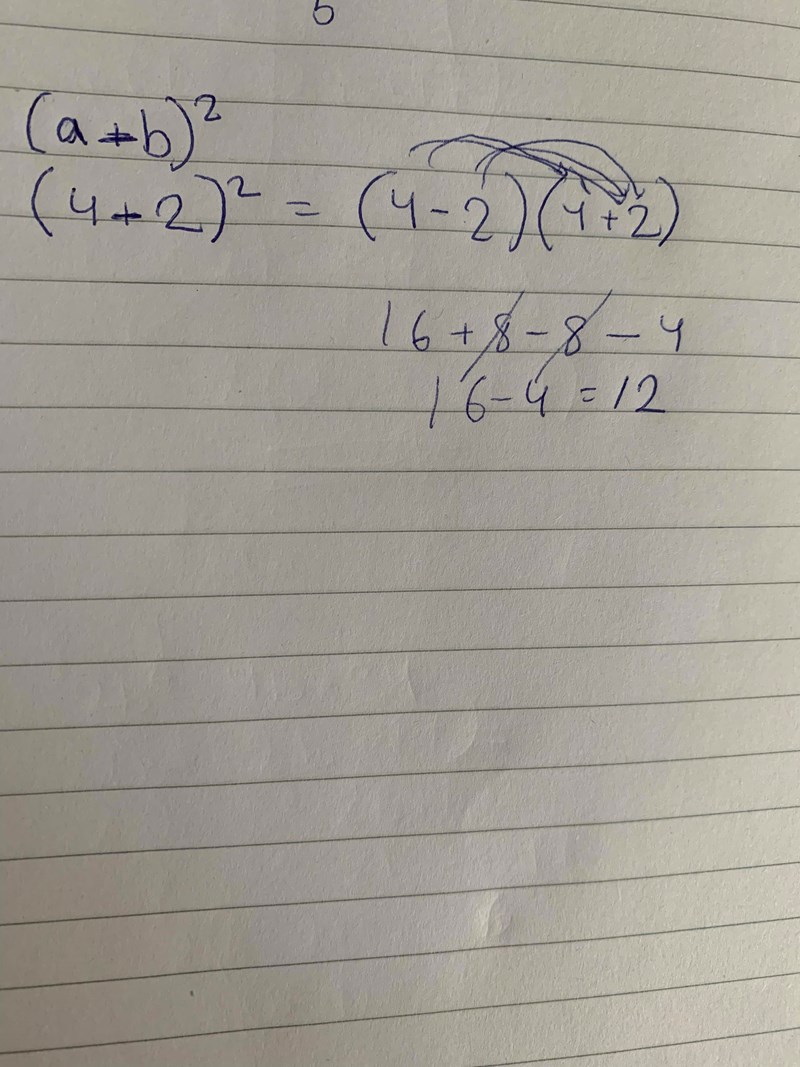 6
(a+b)²
(4+2)² = (4-2)(4+2)
16+8-8-4
16-4=12